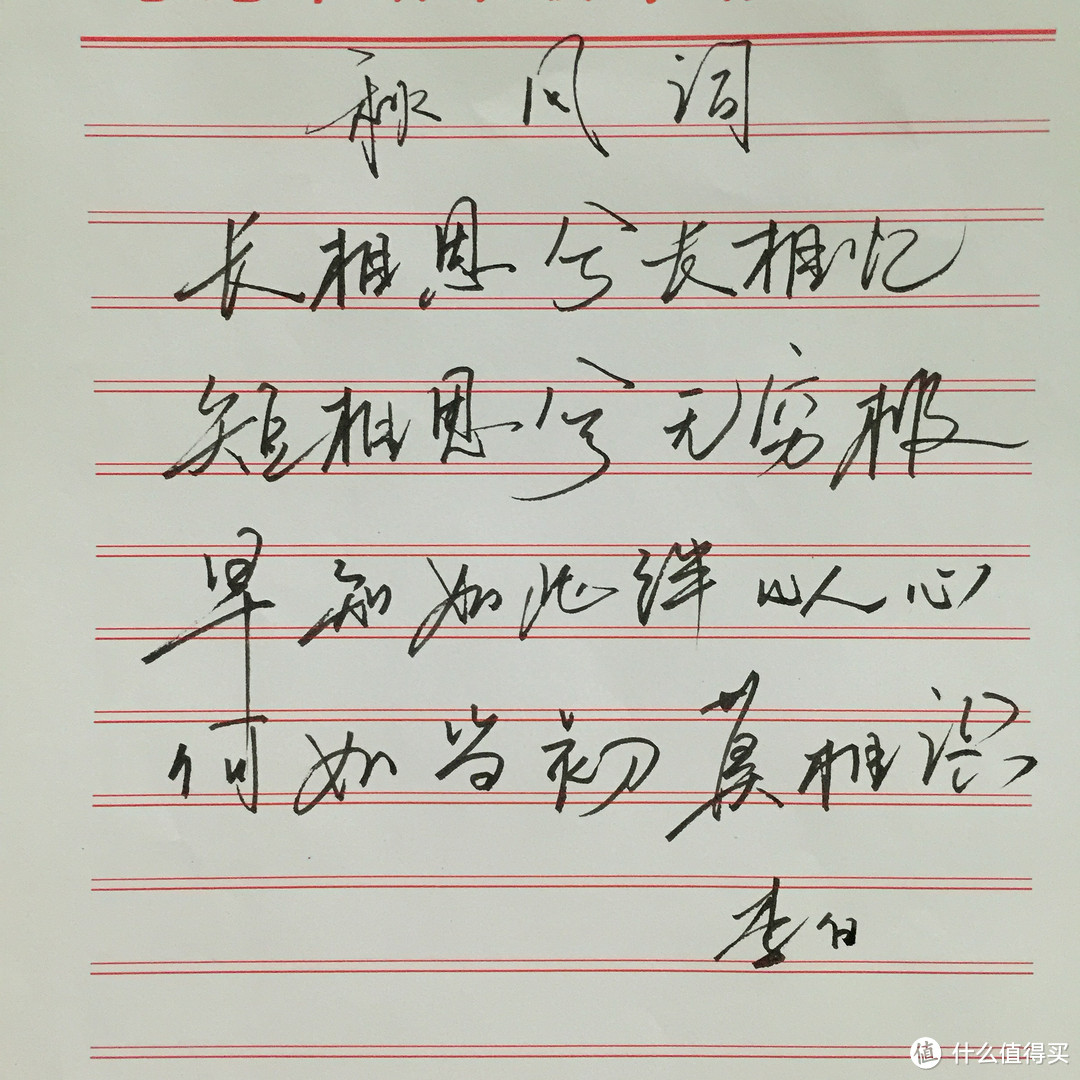 秋风词
长相思兮长相忆
短相思兮无穷极
早知如此绊人心
何如当初莫相识
李白
值 什么值得买